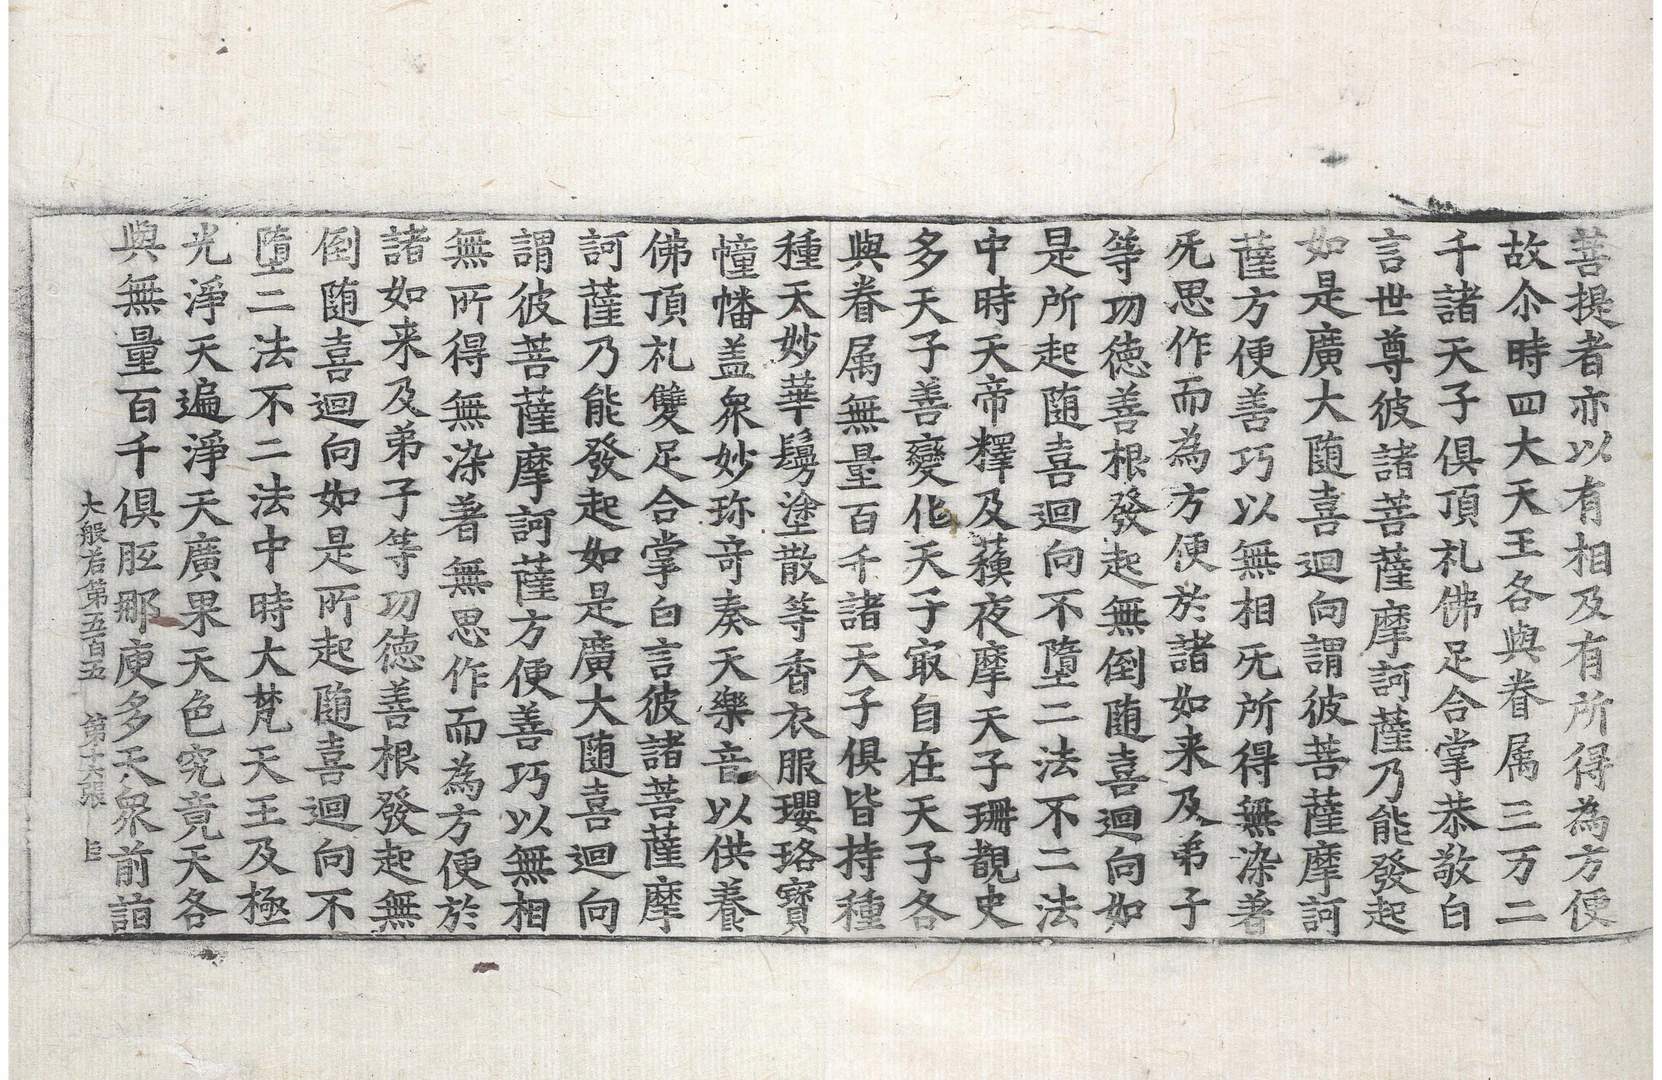 菩提者亦以有相及有所得為方便
故尒時四大天王各與眷属三万二
千諸天子俱頂礼佛足合掌恭敬白
言世尊彼諸菩薩摩訶薩乃能發起
如是廣大随喜迴向謂彼菩薩摩訶
薩方便善巧以無相旡所得無染著
旡思作而為方便於諸如来及弟子
等功徳善根發起無倒随喜迴向如
是所起随喜迴向不墮二法不二法
中時天帝釋及蘓夜摩天子珊覩史
多天子善變化天子㝡自在天子各
與眷属無量百千諸天子俱皆持種
種天妙華鬘塗散等香衣服瓔珞寳
幢幡盖衆妙珎竒奏天樂音以供養
佛頂礼雙足合掌白言彼諸菩薩摩
訶薩乃能發起如是廣大随喜迴向
謂彼菩薩摩訶薩方便善巧以無相
無所得無染著無思作而為方便於
諸如来及弟子等功徳善根發起無
倒随喜迴向如是所起随喜迴向不
墮二法不二法中時大梵天王及極
光淨天遍淨天廣果天色究竟天各
與無量百千俱胝那庾多天衆前詣
大般若第五百五 第十六張 臣